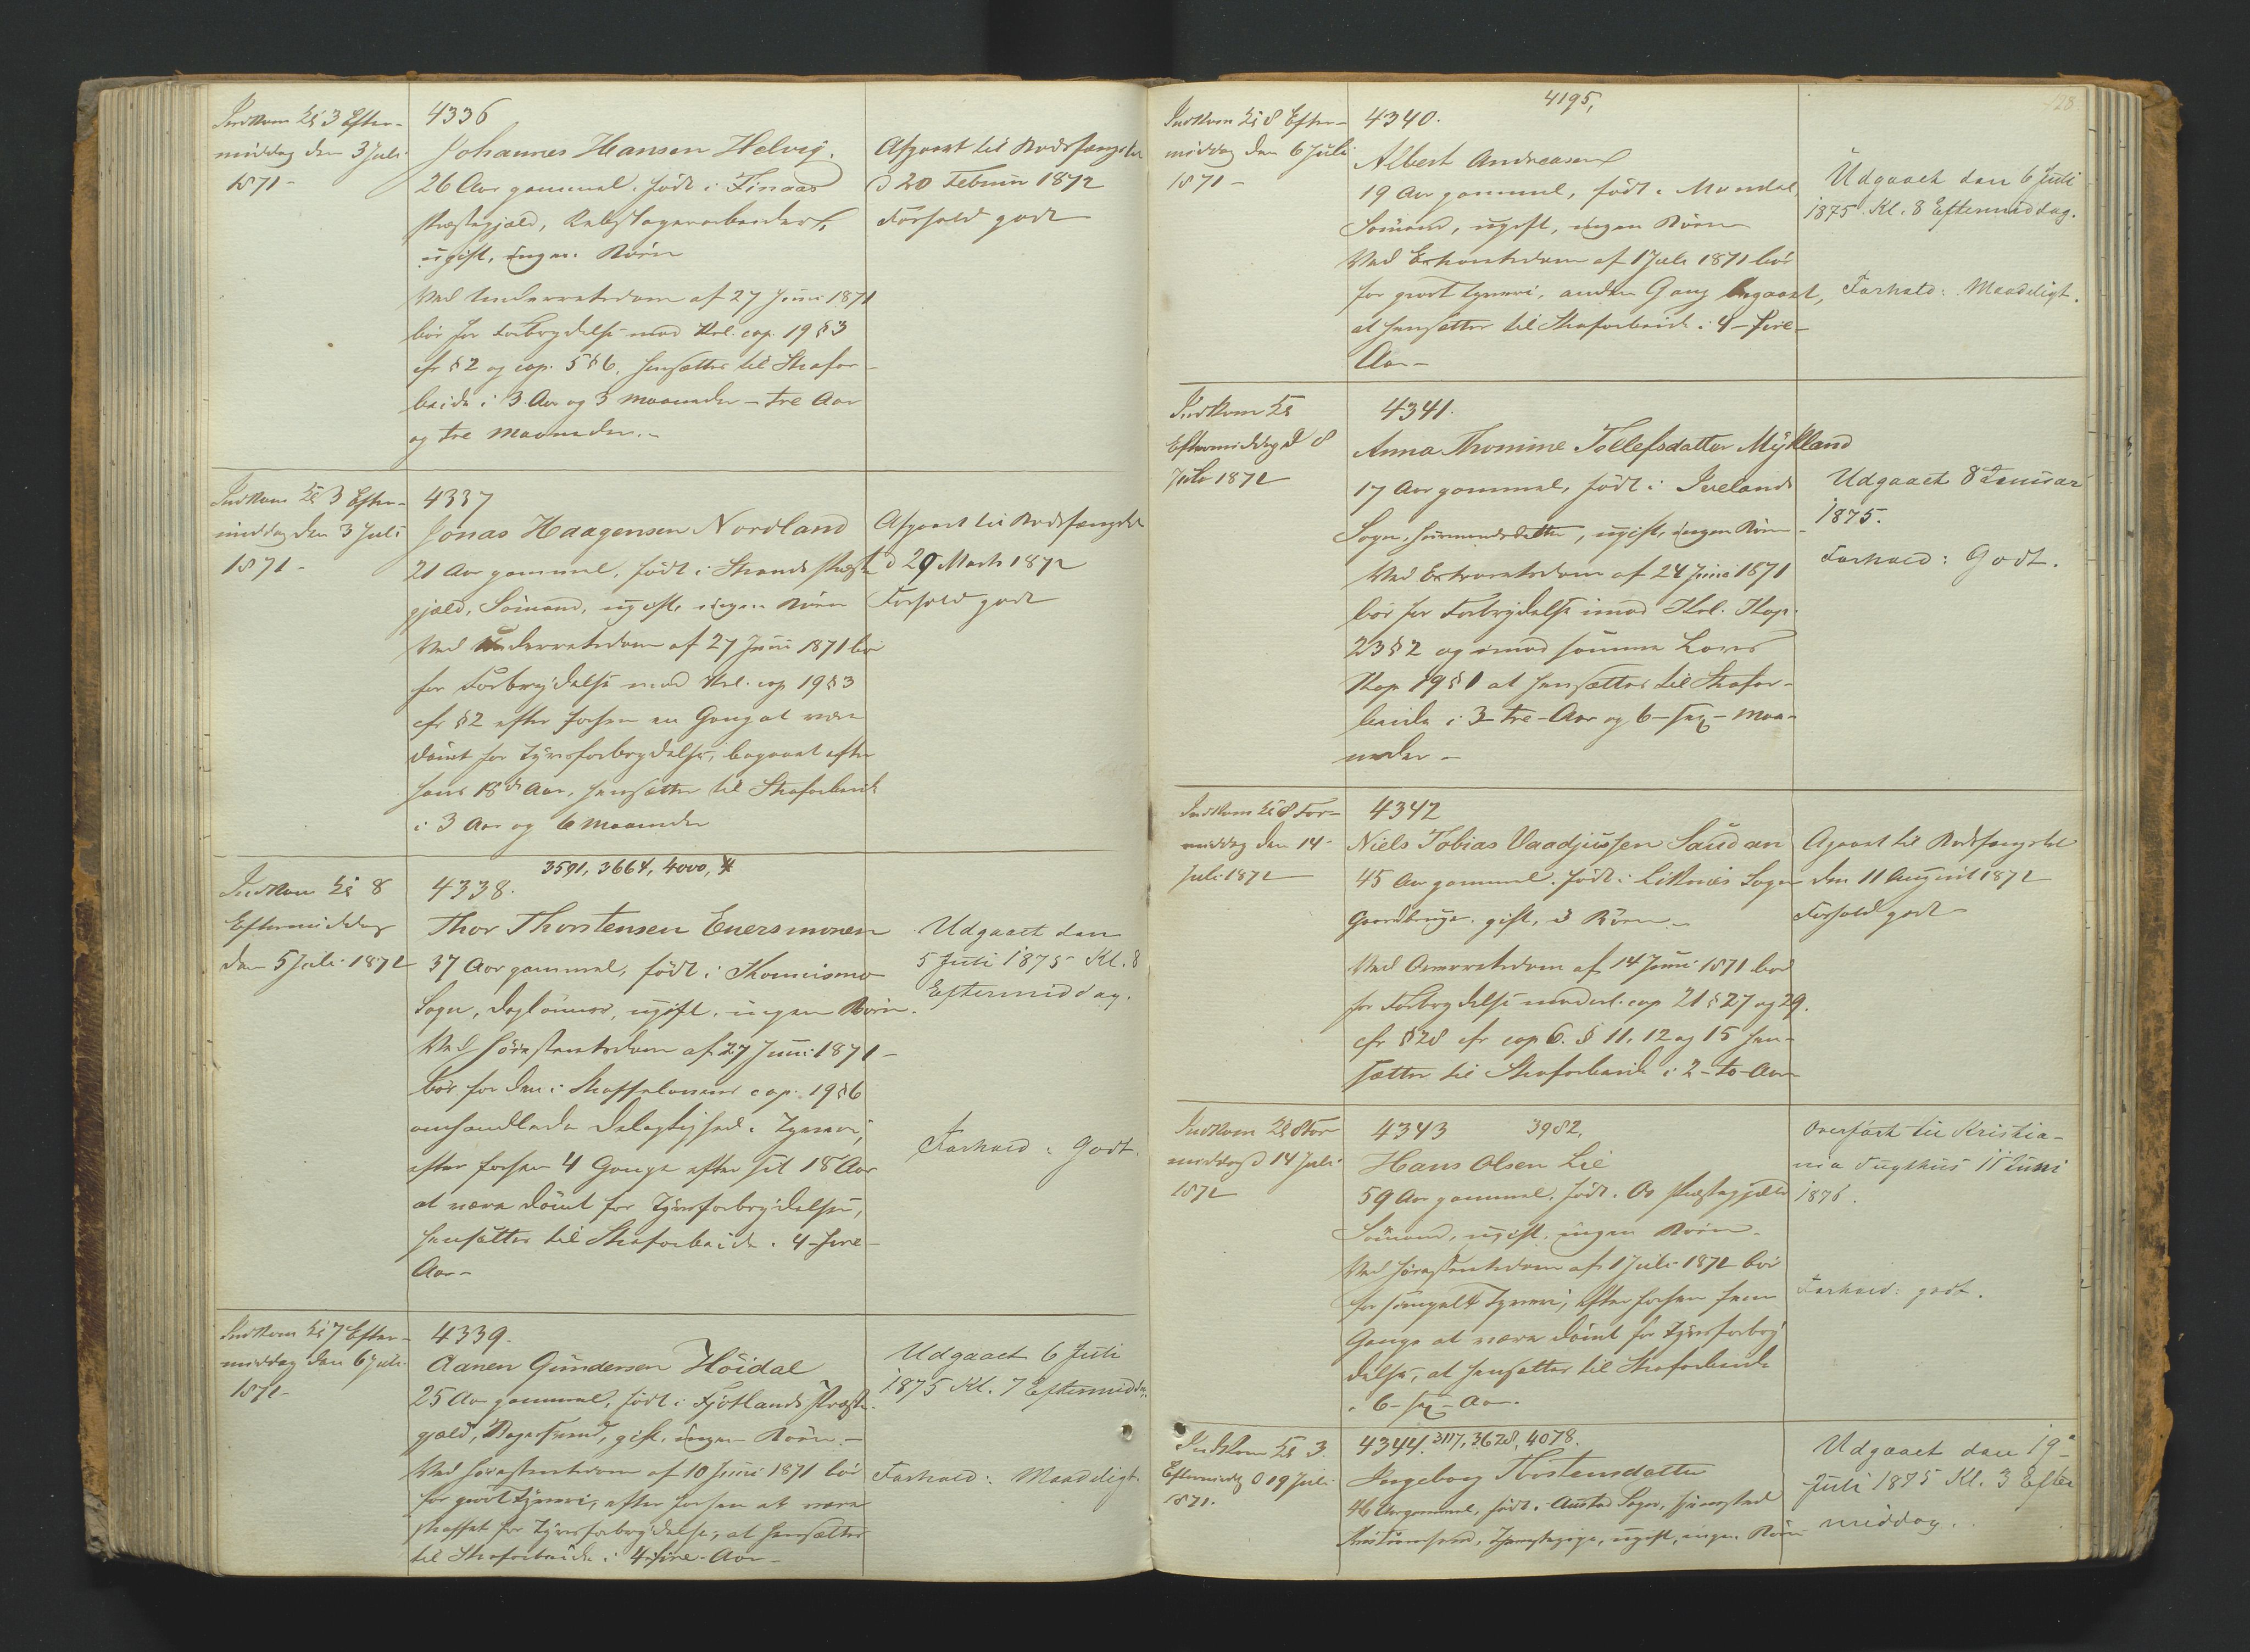 Indkom Kl 3 Efter-
middag den 3 Juli
1871 -
4336
Johannes Hansen Helvig.
26 Aar gammel, født i Finaas
Præstegjæld, Rebslagerarbeider,
ugift, ingen Børn
Ved Underretsdom af 27 Juni 1871
bör for Forbrydelse mod Krl. cap. 19 § 3
cfr § 2 og cap. 5 § 6, hensættes til Strafar-
beide i 3 Aar og 3 Maaneder - tre Aar
og tre Maaneder. -
Afgaaet til Bodsfængslet
d 20 Februar 1872
Forhold godt
Indkom Kl 3 Efter-
middag den 3 Juli
1871 -
4337
Jonas Haagensen Nordland
21 Aar gammel, født i Strands Præste
gjæld, Sömand, ugift, ingen Börn
Ved Underretsdom af 27 Juni 1871 bör
for Forbrydelse mod Krl. cap 19 § 3
cfr § 2 efter forhen en Gang at være
dömt for Tyvsforbrydelse, begaaet efter
hans 18de Aar, hensættes til Strafarbeide
i 3 Aar og 6 Maaneder
Afgaaet til Bodsfængslet
d 29 Marts 1872
Forhold godt
Indkom Kl 8
Eftermiddag
den 5 Juli 1871
3591, 3664, 4000,
4338.
Thor Thorstensen Euersmonen
37 Aar gammel, født i
Sogn, Daglönner, ugift, ingen Börn.
Ved Höiesteretsdom af 27 Juni 1871 -
bör for den i Straffelovens cap. 19 § 6
omhandlede Delagtighed i Tyveri,
efter forhen 4 Gange efter sit 18 Aar
at være dömt for Tyvsforbrydelse,
hensættes til Strafarbeide i 4 - fire -
Aar -
Udgaaet den
5 Juli 1875 Kl. 8
Eftermiddag.
Forhold: Godt.
Indkom Kl 7 Efter-
middag den 6 Juli
1871 -
4339.
Aanen Gundersen Höidal
25 Aar gammel, født i Fjotlands Præste-
gjæld, Bagersvend, gift, ingen Börn -
Ved Höiesteretsdom af 10 Juni 1871 bör
for grovt Tyveri, efter forhen at være
straffet for Tyvsforbrydelse, at hensættes
til Strafarbeide i 4 - fire - Aar -
Udgaaet 6 Juli
1875 Kl. 7 Eftermidda.
Forhold: Maadeligt.
128
Indkom Kl 8 Efter-
middag den 6 Juli
1871 -
4195,
4340.
Albert Andreasen
19 Aar gammel, født i Mandal,
Sömand, ugift, ingen Börn
Ved Extraretsdom af 1 Juli 1871 bör
for grovt Tyveri, anden Gang begaaet,
at hensættes til Strafarbeide i 4 - fire -
Aar -
Udgaaet den 6 Juli
1875 Kl. 8 Eftermiddag.
Forhold: Maadeligt.
Indkom Kl
Eftermiddag d 8
Juli 1871
4341.
Anna Thomine Tollefsdatter Mykland
17 Aar gammel, født i Ivelands
Sogn, Huusmandsdatter, ugift, ingen Börn -
Ved Extraretsdom af 24 Juni 1871
bör for Forbrydelse imod Krl. Kap.
23 § 2 og imod samme Lovs
Kap 19 § 1 at hensættes til Strafar-
beide i 3 - tre - Aar og 6 - sex - Maa-
neder -
Udgaaet 8 Januar
1875.
Forhold: Godt.
Indkom Kl 8 For-
middag den 14
Juli 1871
4342
Niels Tobias Vaadjussen Saudan
45 Aar gammel, født i Liknæs Sogn
Gaardbruger, gift, 3 Börn -
Ved Overretsdom af 14 Juni 1871 bör
for Forbrydelse mod Krl. cap 21 § 27 og 29.
cfr § 28 cfr cap 6. § 11, 12 og 15 hen-
sættes til Strafarbeide i 2 - to - Aar
Afgaaet til Bodsfængslet
den 11 August 1871
Forhold godt
Indkom Kl 8 For
middag d 14 Juli
1871
4343 3982.
Hans Olsen Lie
59 Aar gammel, født i Os Præstegjæld
Sömand, ugift, ingen Börn -
Ved Höiesteretsdom af 1 Juli 1871 bör
for simpelt Tyveri, efter forhen fem
Gange at være dömt for Tyvsforbry
delse, at hensættes til Strafarbeide
i 6 - sex - Aar.
Overfört til Kristia-
nia Tugthus 11 Juni
1876.
Forhold: godt.
Indkom Kl 3
Eftermiddg d 19 Juli
1871.
4344. 3117, 3628, 4078.
Ingeborg Thorstensdatter
46 Aar gammel, født i Austad Sogn, hjemsted
Kristianssand, Tjenestepige, ugift, ingen Börn
Udgaaet den 19
Juli 1875 Kl. 3 Efter
middag.